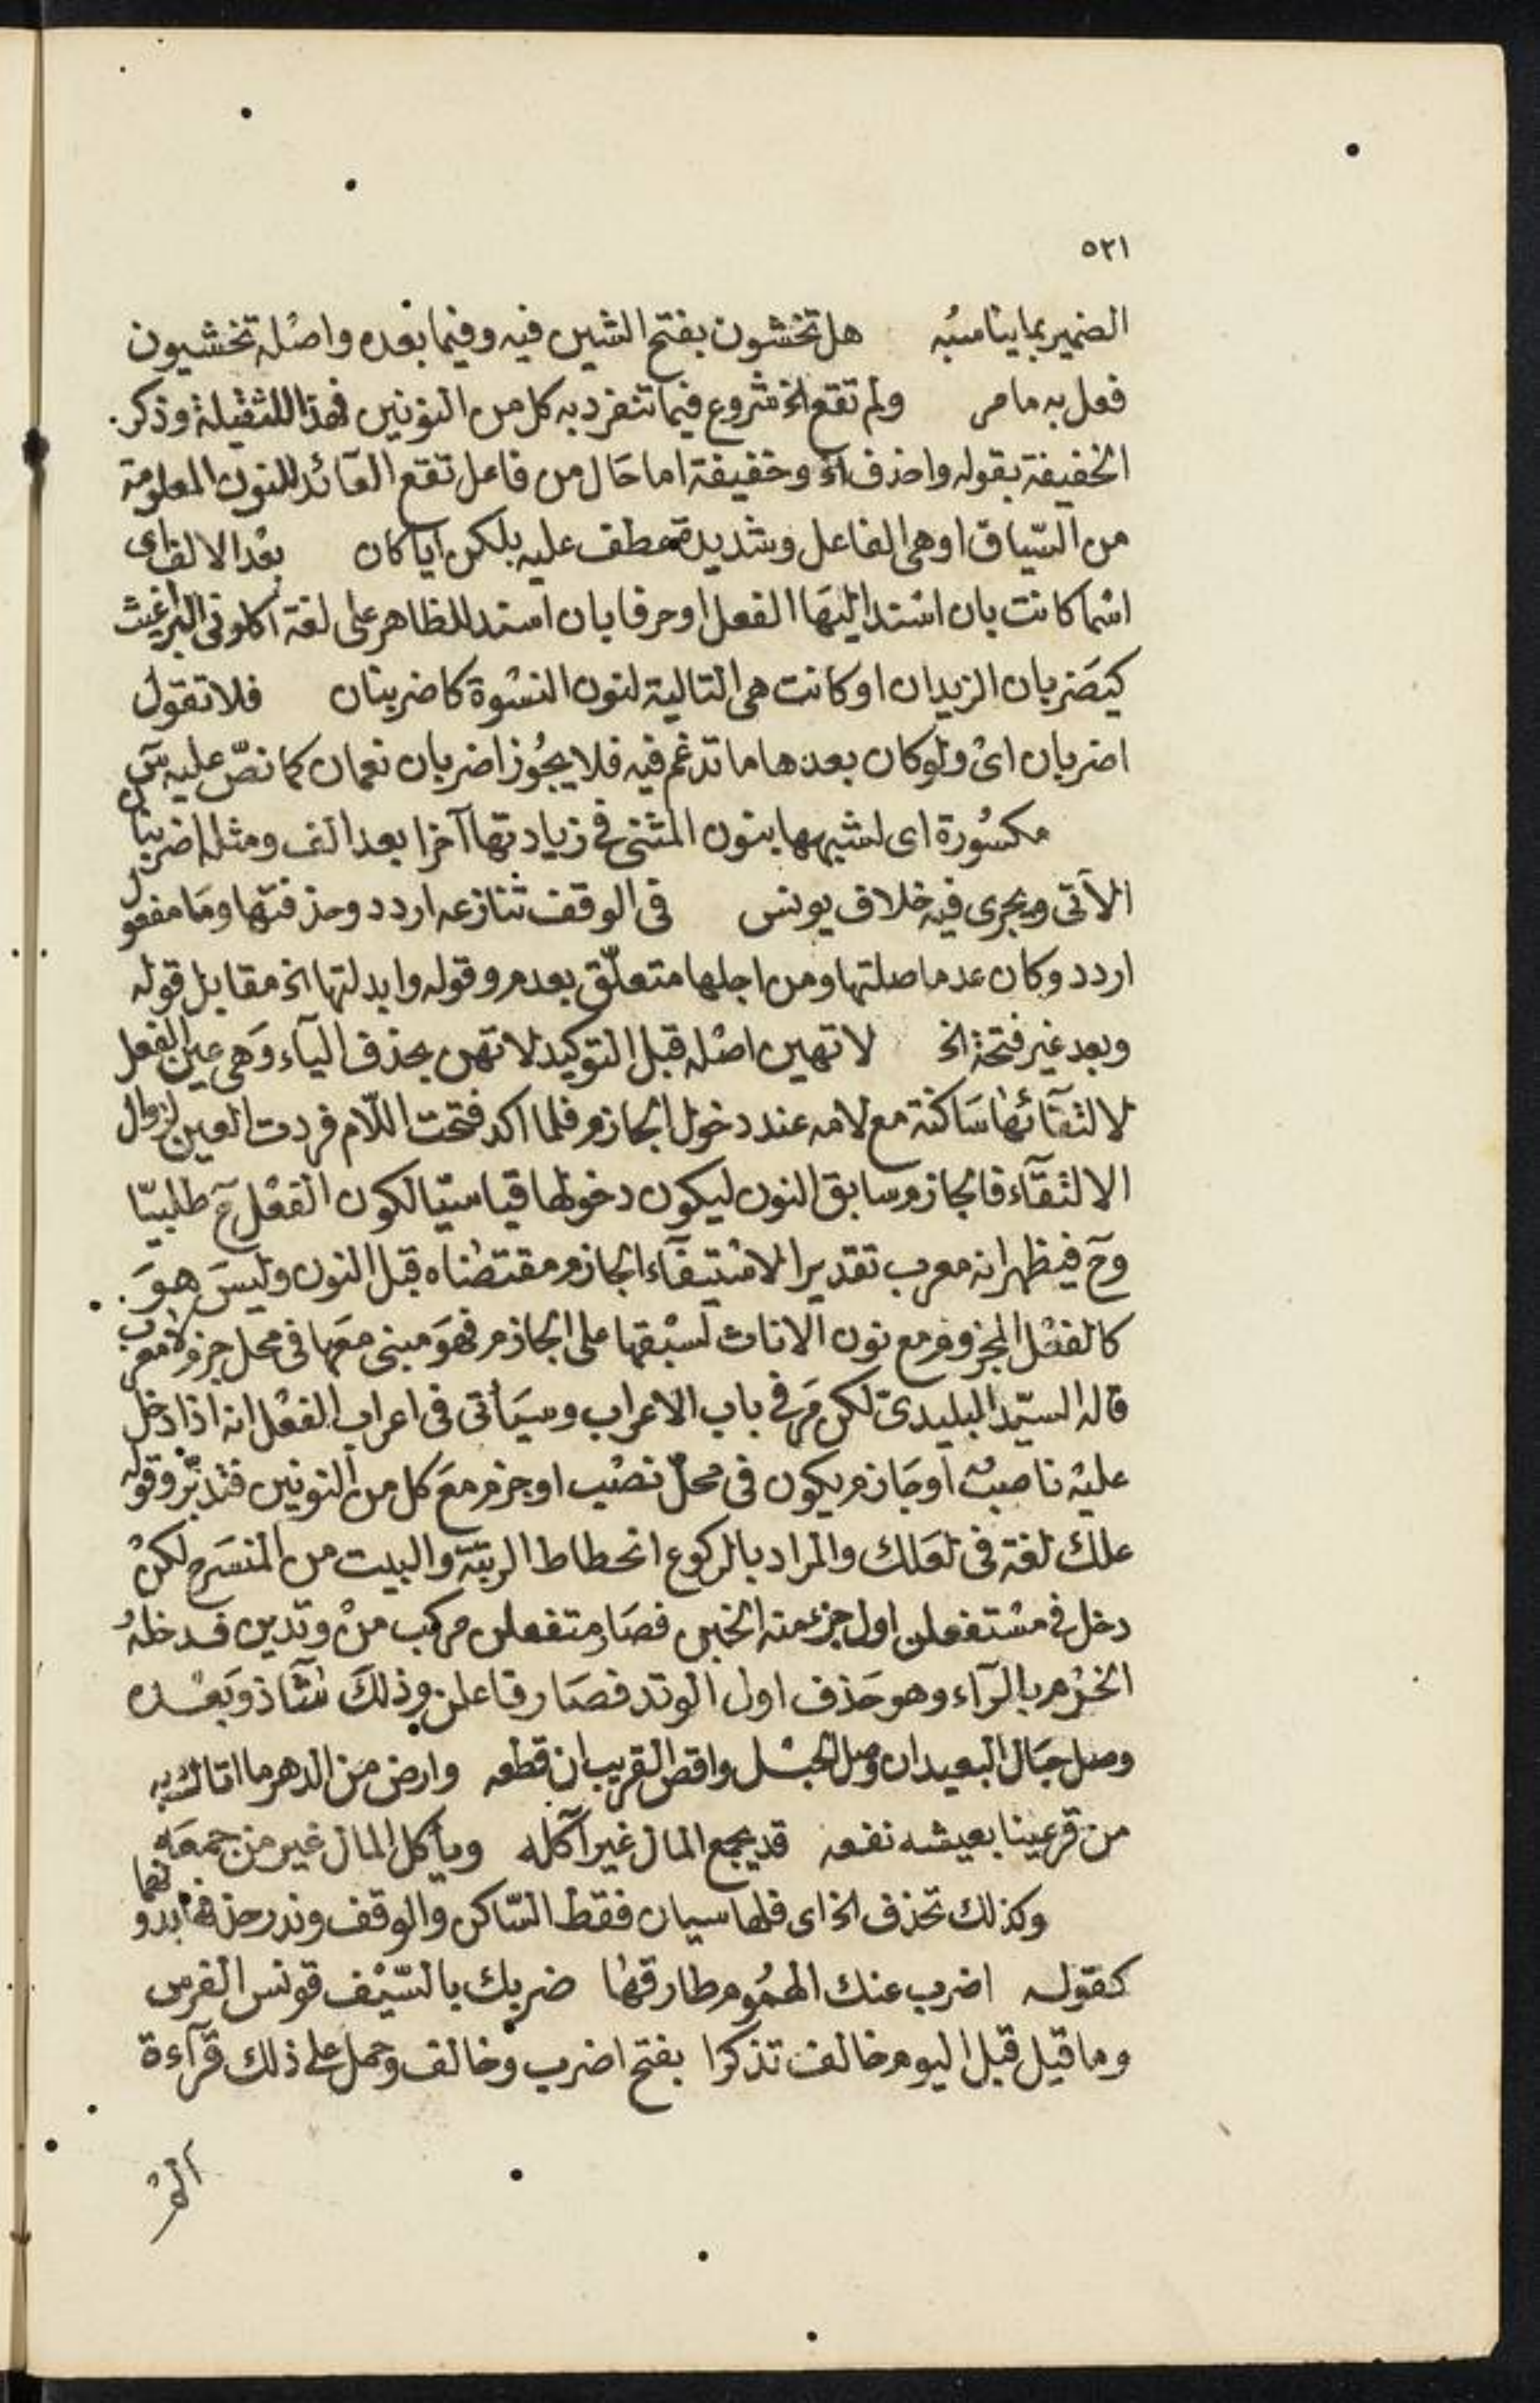 ٥٢١
الضمير بما يناسبه هل تخشون بفتح الشين فيه وفيما بعده واصله تخشيون
فعل به ما مر ولم تقع الخ شروع فيما تنفرد به كل من النونين فهذا للثقيلة وذكر
الخفيفة بقوله واحذف الخ وخفيفة اما حال من فاعل تقع العائد للنون المعلومة
من السياق او هي الفاعل وشديدة عطف عليه بلكن ايا كان بعد الالف اى
اسما كانت بان اسند اليها الفعل او حرفا بان اسند للظاهر على لغة اكلونى البراغيث
كيضربان الزيدان او كانت هى التالية لنون النسوة كاضربنان فلا تقول
اضربان اى ولو كان بعدها ما تدغم فيه فلا يجوز اضربان نعمان كما نص عليه س
مكسورة اى لشبهها بنون المثنى فى زيادتها آخرا بعد الف ومثله اضربنان
الآتى ويجرى فيه خلاف يونس فى الوقف تنازعه اردد وحذفتها وما مفعول
اردد وكان عدما صلتها ومن اجلها متعلق بعدم وقوله وابدلتها الخ مقابل قوله
وبعد غير فتحة الخ لا تهين اصله قبل التوكيد لا تهن بحذف الياء وهى عين الفعل
لالتقائها ساكنة مع لامه عند دخول الجازم فلما اكد فتحت اللام فردت العين لزوال
الالتقاء فالجازم سابق النون ليكون دخولها قياسيا لكون الفعل ح طلبيا
وح فيظهر انه معرب تقديرا لاستيفاء الجازم مقتضاه قبل النون وليس هو
كالفعل المجزوم مع نون الاناث لسبقها على الجازم فهو مبنى معها فى محل جزم لا معرب
قاله السيد البليدى لكن مر فى باب الاعراب وسيأتى فى اعراب الفعل انه اذا دخل
عليه ناصب او جازم يكون فى محل نصب او جزم مع كل من النونين فتدبر وقوله
علك لغة فى لعلك والمراد بالركوع انحطاط الرتبة والبيت من المنسرح لكن
دخل فى مستفعلن اول جزء منه الخبن فصار متفعلن مركب من وتدين فدخله
الخرم بالراء وهو حذف اول الوتد فصار فاعلن وذلك شاذ وبعده
وصل حبال البعيد ان وصل الحبل واقص القريب ان قطعه وارض من الدهر ما اتاك به
من قر عينا بعيشه نفعه قد يجمع المال غير آكله ويأكل المال غير من جمعه
وكذلك تحذف الخ اى فلها سببان فقط الساكن والوقف وندر حذفها بدونهما
كقوله اضرب عنك الهموم طارقها ضربك بالسيف قونس الفرس
وما قيل قبل اليوم خالف تذكرا بفتح اضرب وخالف وحمل على ذلك قرآءة